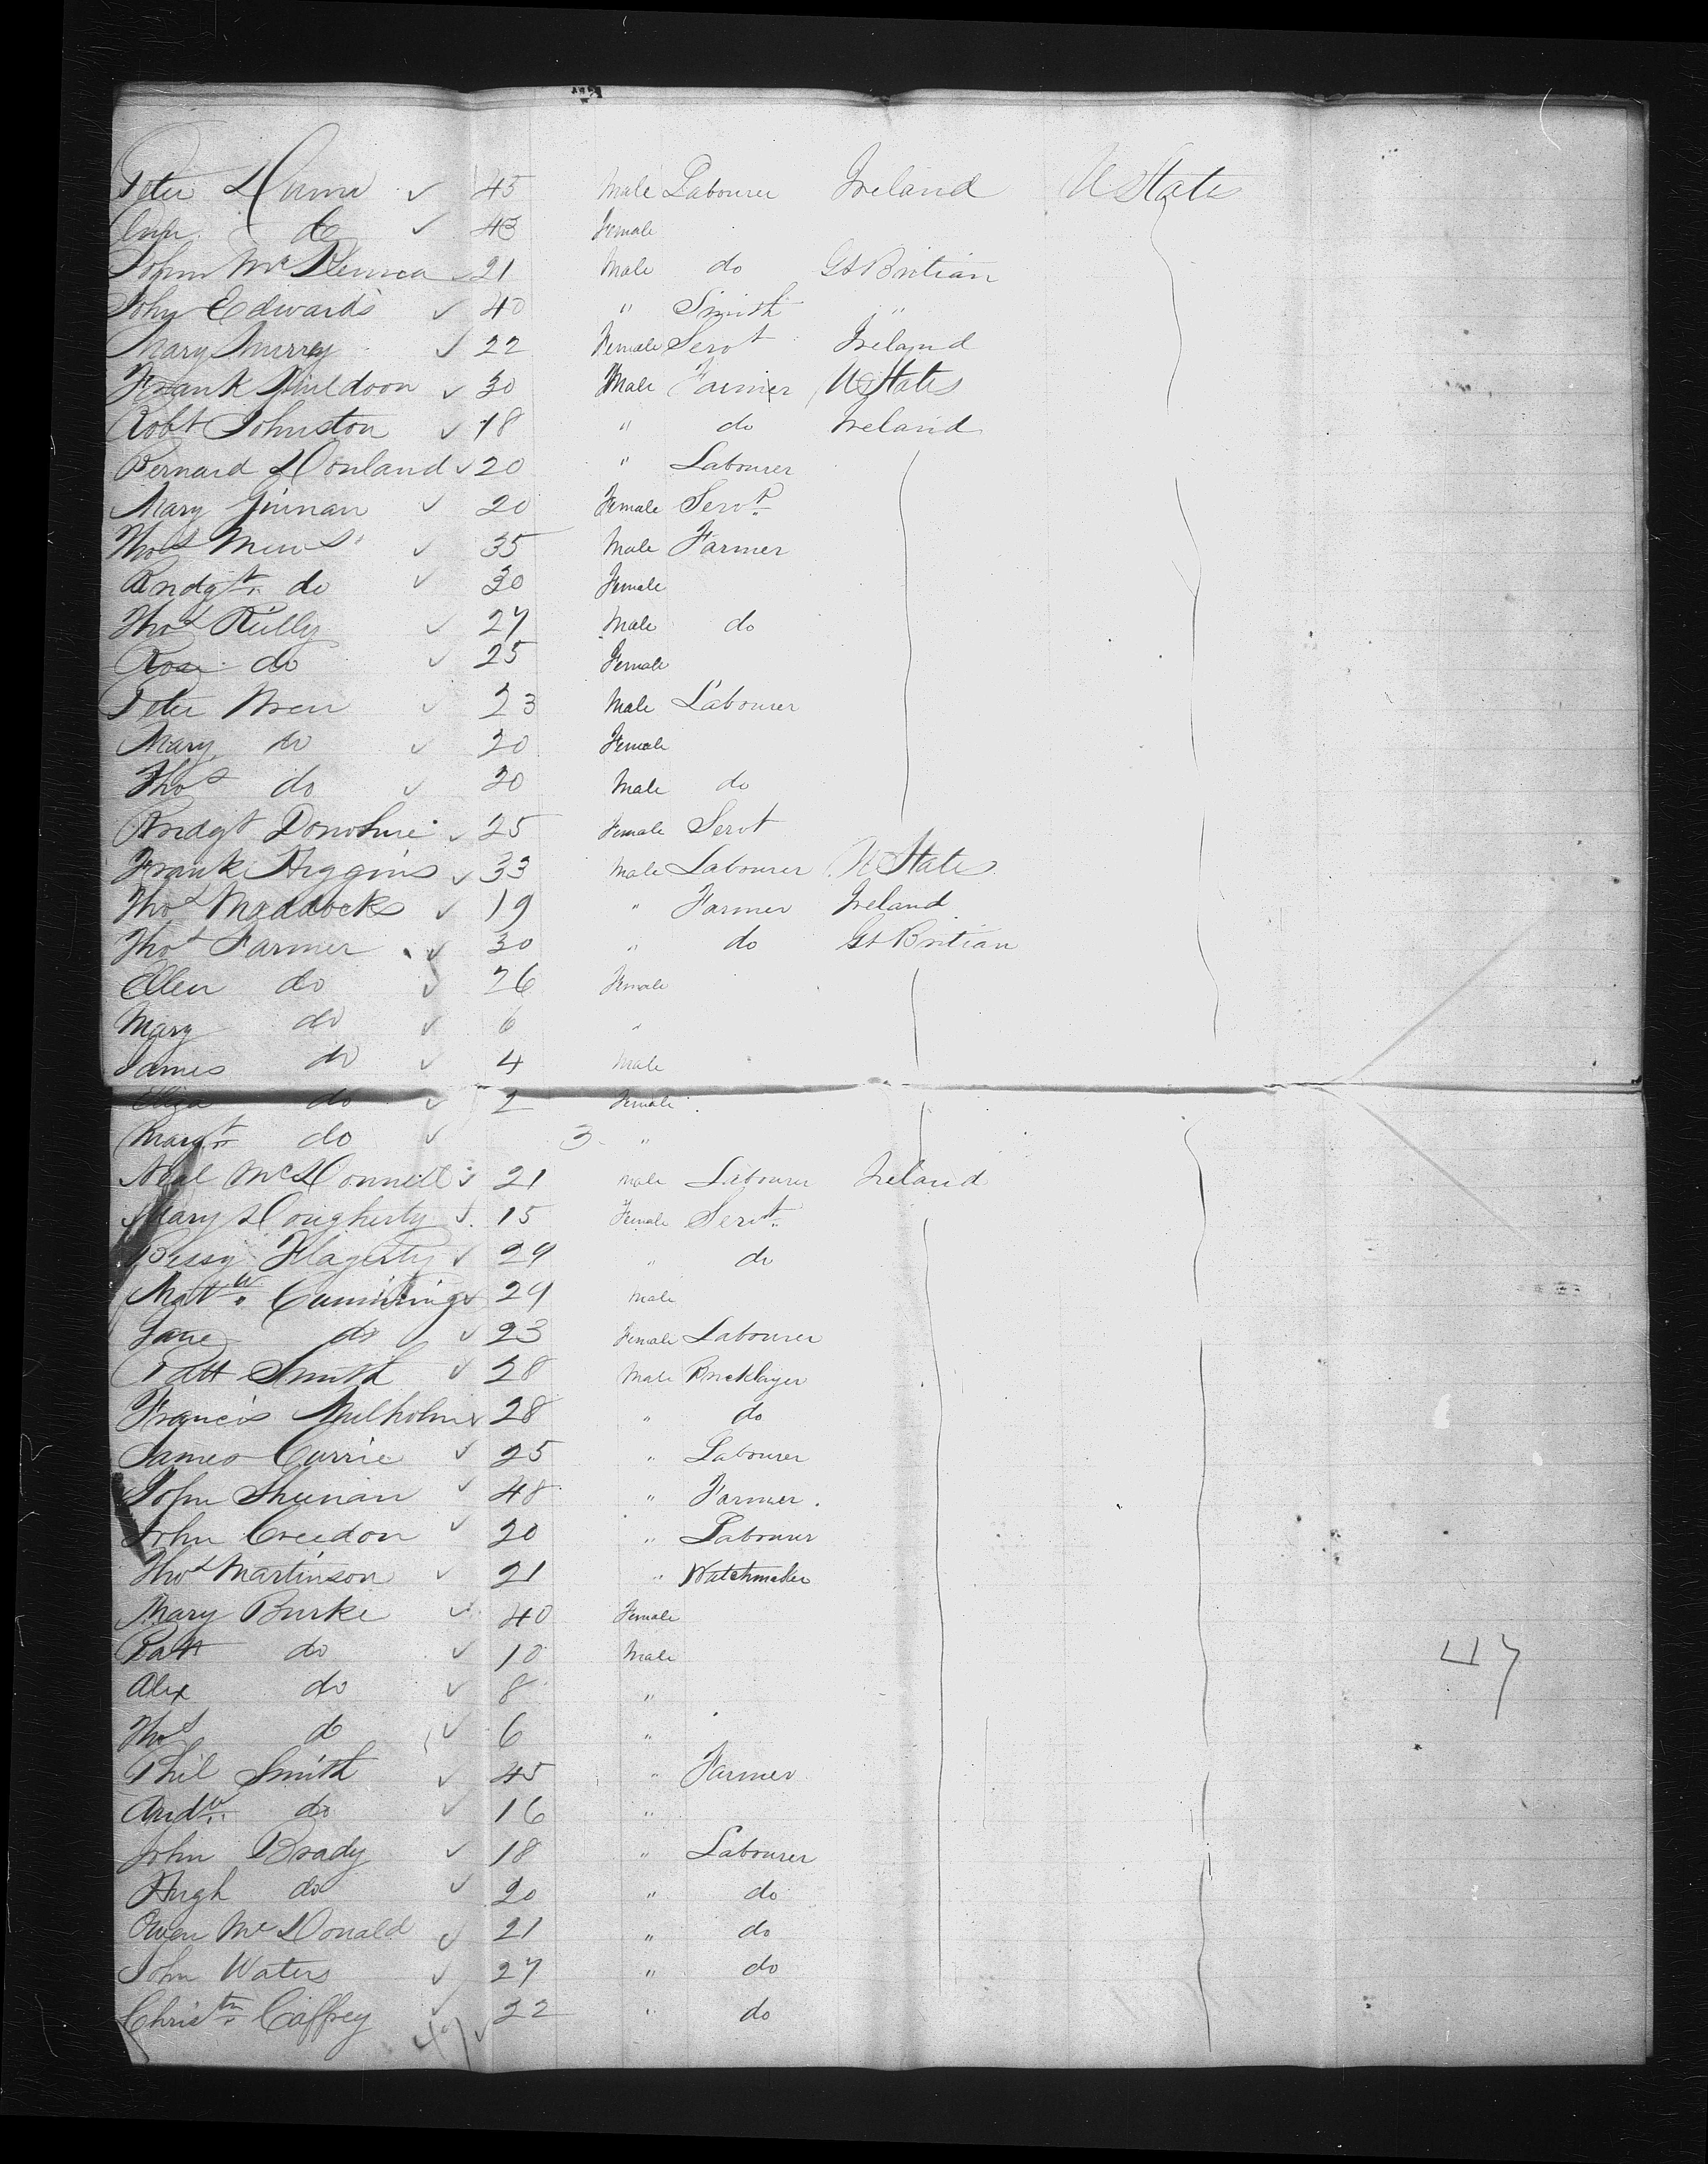 Peter Dunn 45 Male Labourer Ireland U States
Ann do 43 Female
John Mc 21 Male do Gt Britian
John Edwards 40 " Smith "
Mary Murrey 22 Female Servt Ireland
Frank Muldoon 30 Male Farmer U States
Robt Johnston 18 " do Ireland
Bernard Donland 20 " Labourer
Mary Ginnan 20 Female Servt
Thos 35 Male Farmer
Bridgt. do 30 Female
Thos Reilly 27 Male do
Rose do 25 Female
Peter 23 Male Labourer
Mary do 20 Female
Thos do 20 Male do
Bridgt Donohue 25 Female Servt
Frank Higgins 33 Male Labourer U States
Thos Maddocks 19 " Farmer Ireland
Thos Farmer 30 " do Gt Britian
Ellen do 26 Female
Mary do 6 "
James do 4 Male
Eliza do 2 Female
Margt do 3 "
Neal McDonnell 21 Male Labourer Ireland
Mary Dougherty 15 Female Servt.
Bessy Hagerty 29 " do
Mattw. Cummings 29 Male
Jane do 23 Female Labourer
Patt Smith 28 Male Bricklayer
Francis Mulholm 28 " do
James Currie 25 " Labourer
John Sheenan 48 " Farmer.
John Creedon 20 " Labourer
Thos Martinson 21 " Watchmaker
Mary Burke 40 Female
Patt do 10 Male
Alex do 8 "
Thos do 6 "
Phil Smith 45 " Farmer
Andw. do 16 "
John Brady 18 " Labourer
Hugh do 20 " do
Owen McDonald 21 " do
John Waters 27 " do
Christn. Caffrey 22 " do
47
47